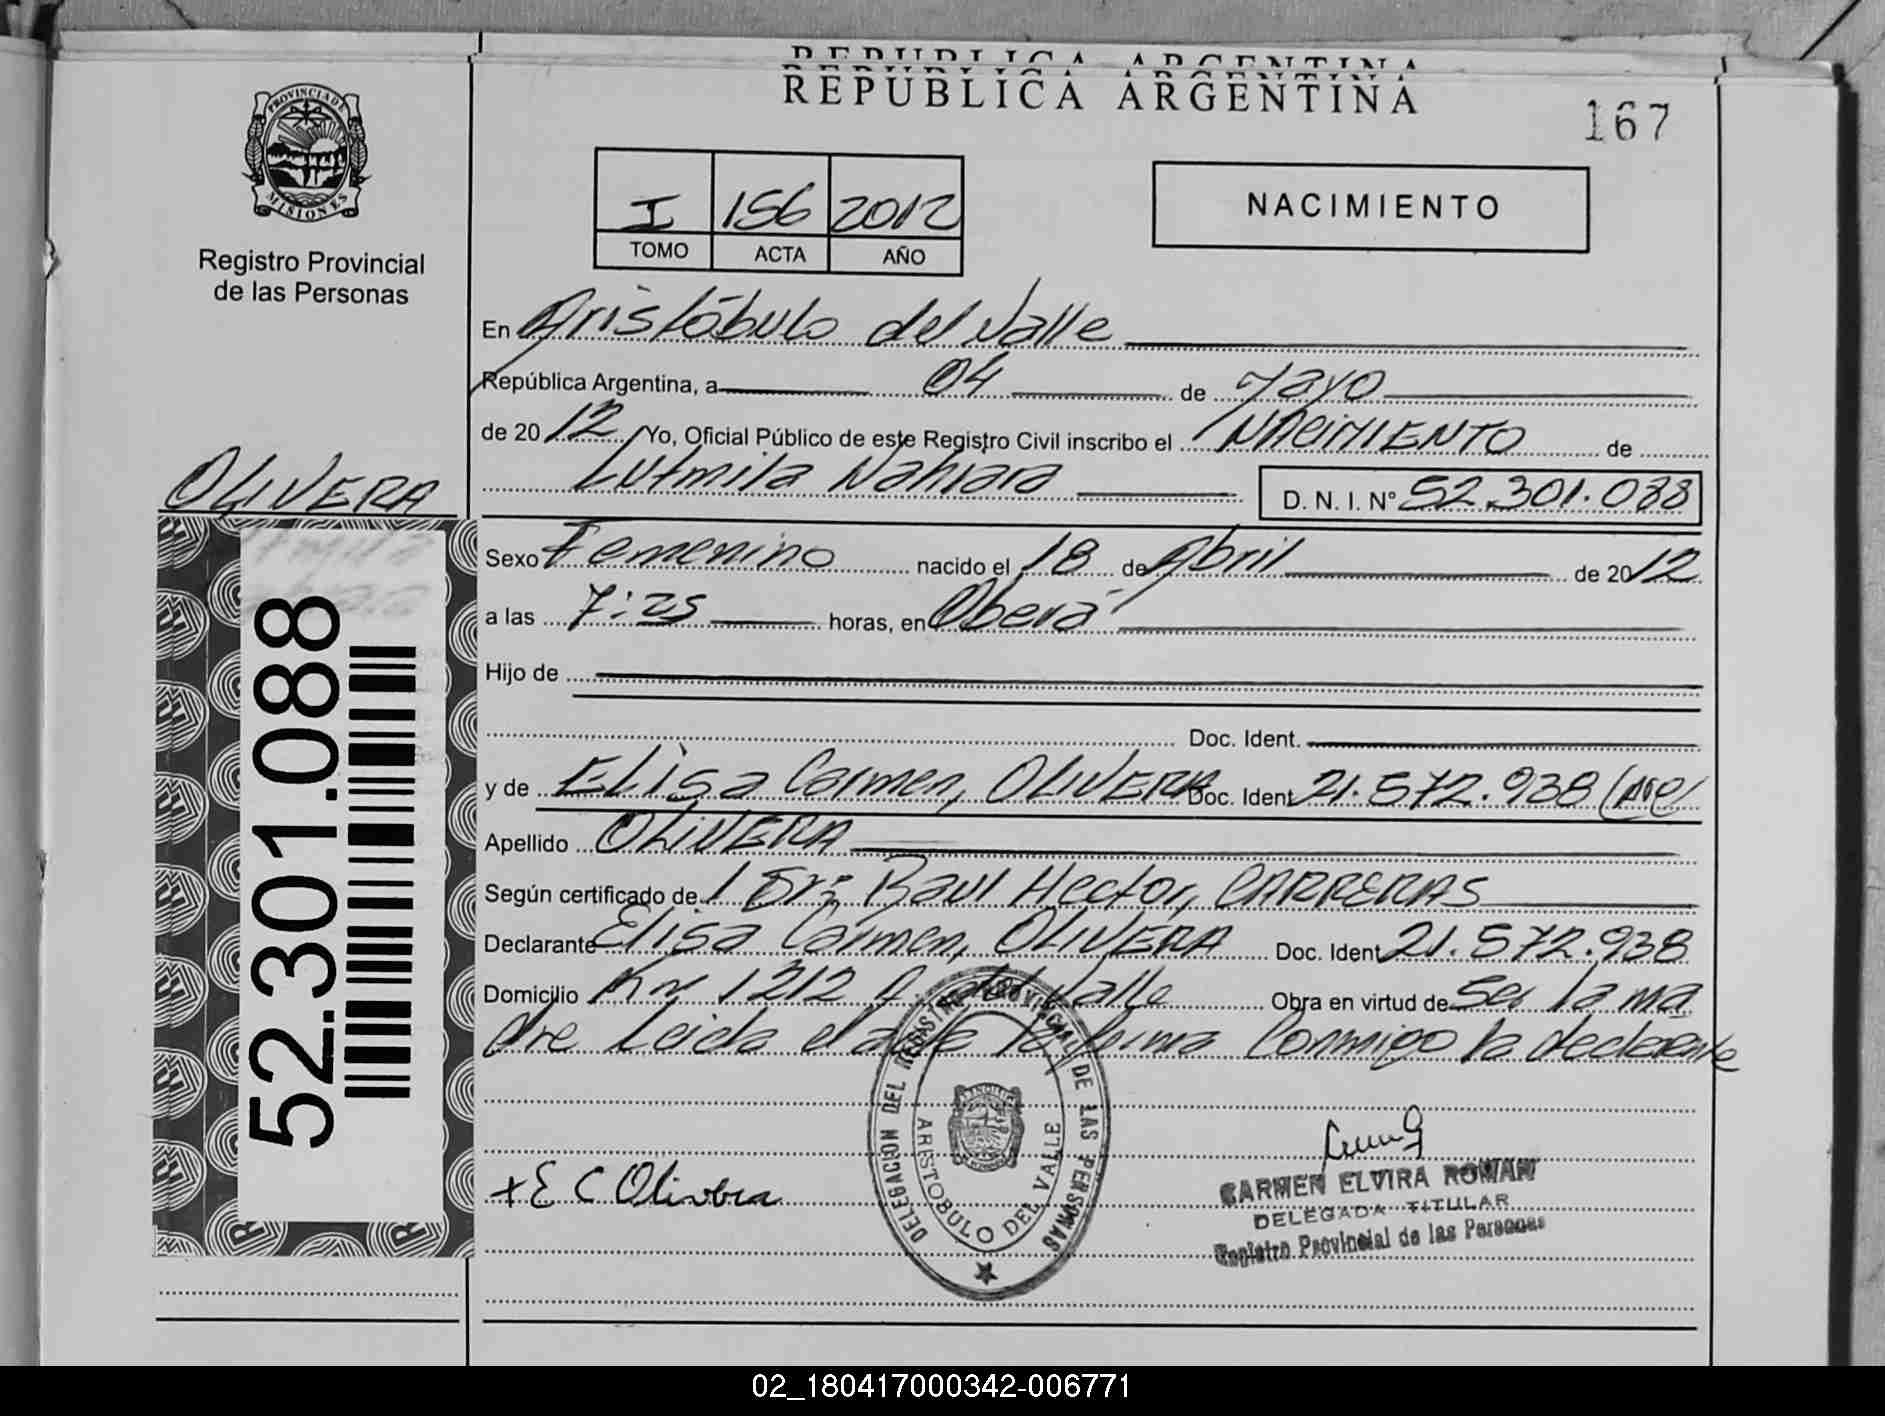 REPUBLICA ARGENTINA
REPUBLICA ARGENTINA
167
PROVINCIA DE
MISIONES
Registro Provincial
de las Personas
I 156 2012
TOMO ACTA AÑO
NACIMIENTO
En Aristóbulo del Valle
República Argentina, a 04 de Mayo
de 20 12 Yo, Oficial Público de este Registro Civil inscribo el NACIMIENTO de
Ludmila Nahiara D. N. I. Nº 52.301.088
OLIVERA
52.301.088
Sexo Femenino nacido el 18 de Abril de 20 12
a las 7:25 horas, en Oberá
Hijo de
Doc. Ident.
y de Elisa Carmen, OLIVERA Doc. Ident 21.572.938
Apellido OLIVERA
Según certificado de 1 Dr: Raul Hector, CARRERAS
Declarante Elisa Carmen, OLIVERA Doc. Ident 21.572.938
Domicilio Km 1212 A. del Valle Obra en virtud de Ser la ma
dre Leida el acta la firma Conmigo la declarante
DELEGACION DEL REGISTRO PROVINCIAL DE LAS PERSONAS
ARISTOBULO DEL VALLE
+ E C Olivera
CARMEN ELVIRA ROMAN
DELEGADA TITULAR
Registro Provincial de las Personas
02_180417000342-006771